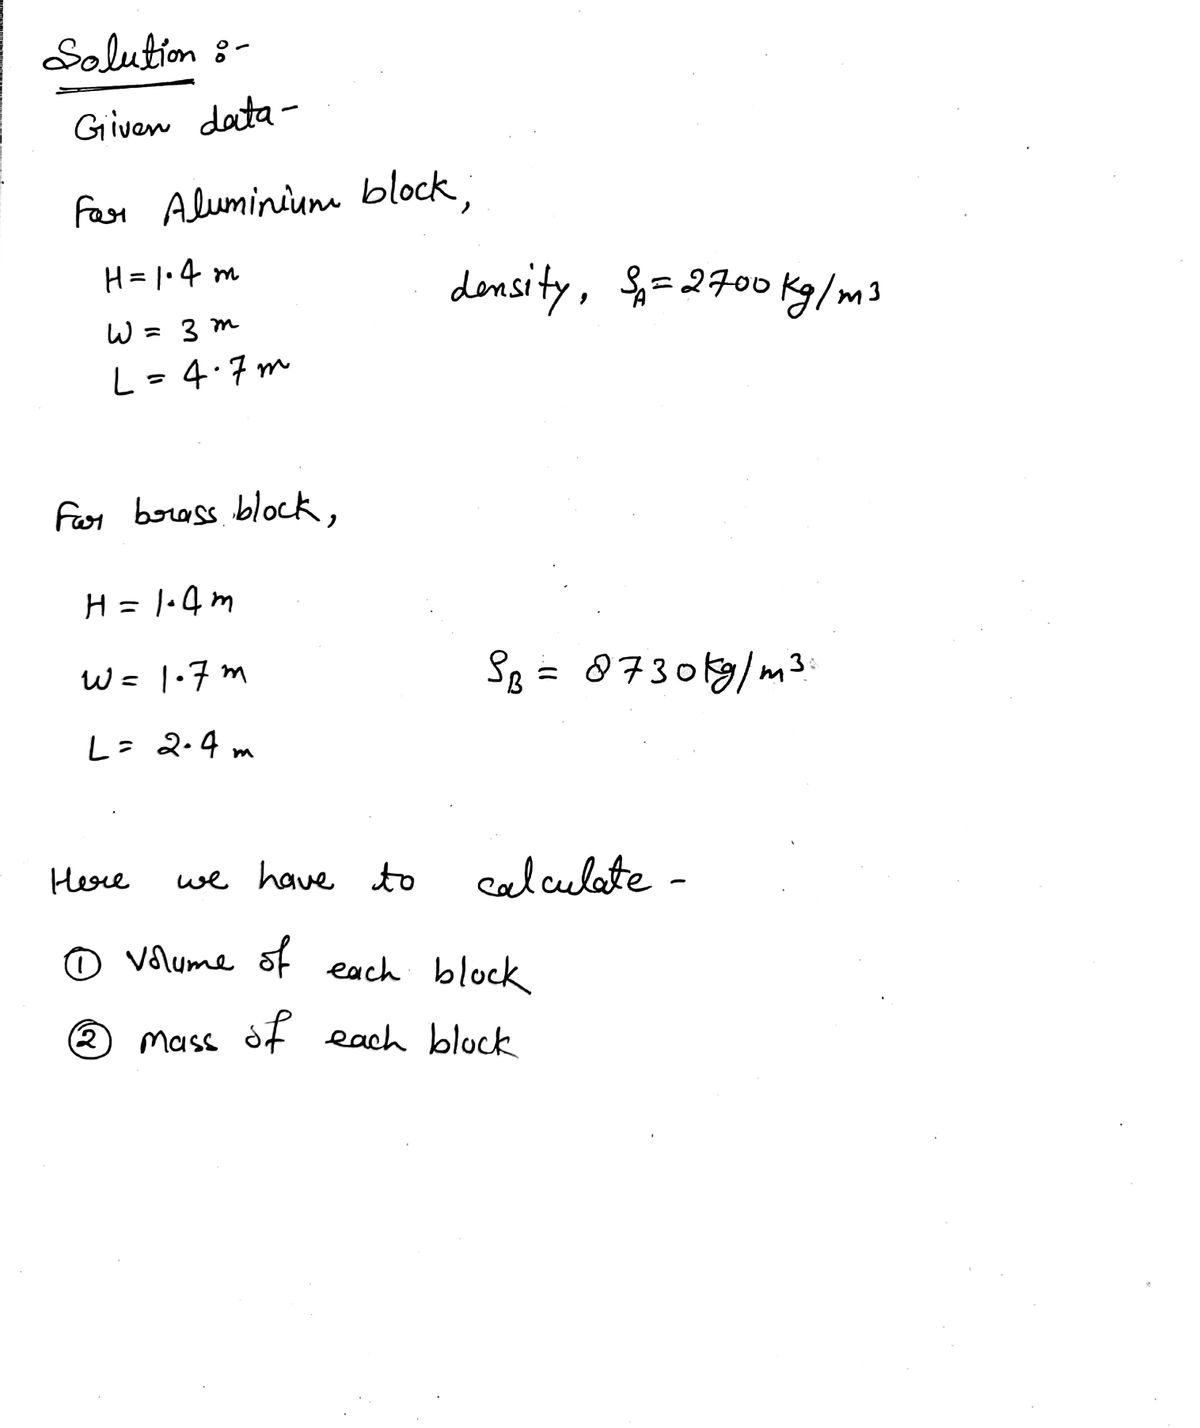 Solution :-
Given data -
For Aluminium block,
H = 1.4 m
density, ρA = 2700 kg/m3
W = 3 m
L = 4.7 m
For brass block,
H = 1.4 m
W = 1.7 m
ρB = 8730 kg/m3
L = 2.4 m
Here we have to calculate -
① Volume of each block
② mass of each block